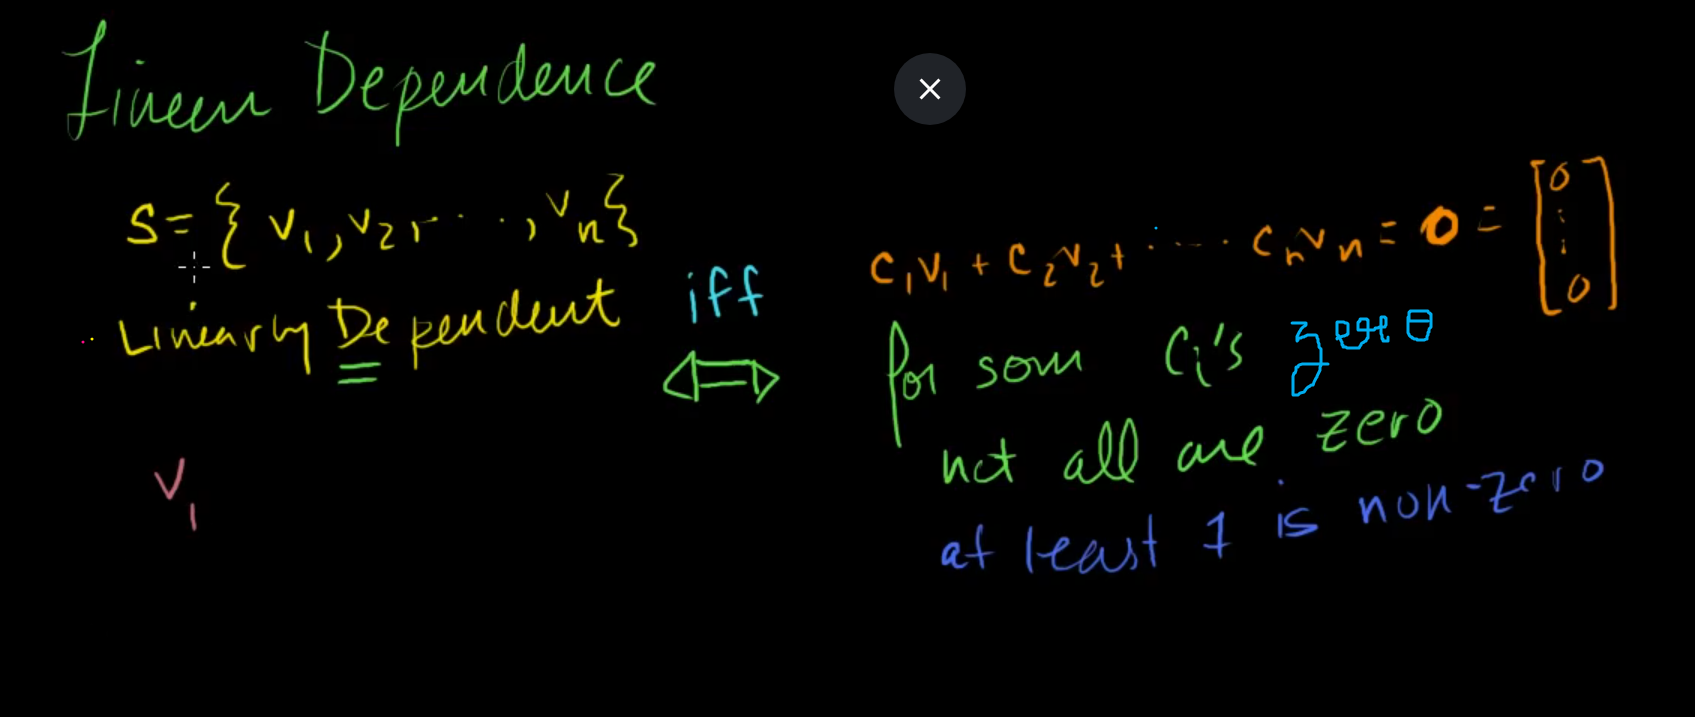 Linear Dependence
S = { v₁, v₂, ....., vₙ}
Linearly Dependent iff ⟺
c₁v₁ + c₂v₂ + ..... cₙvₙ = 0 = [0 ⋮ 0]
for som Cᵢ's zero
not all are zero
at least 1 is non-zero
v₁